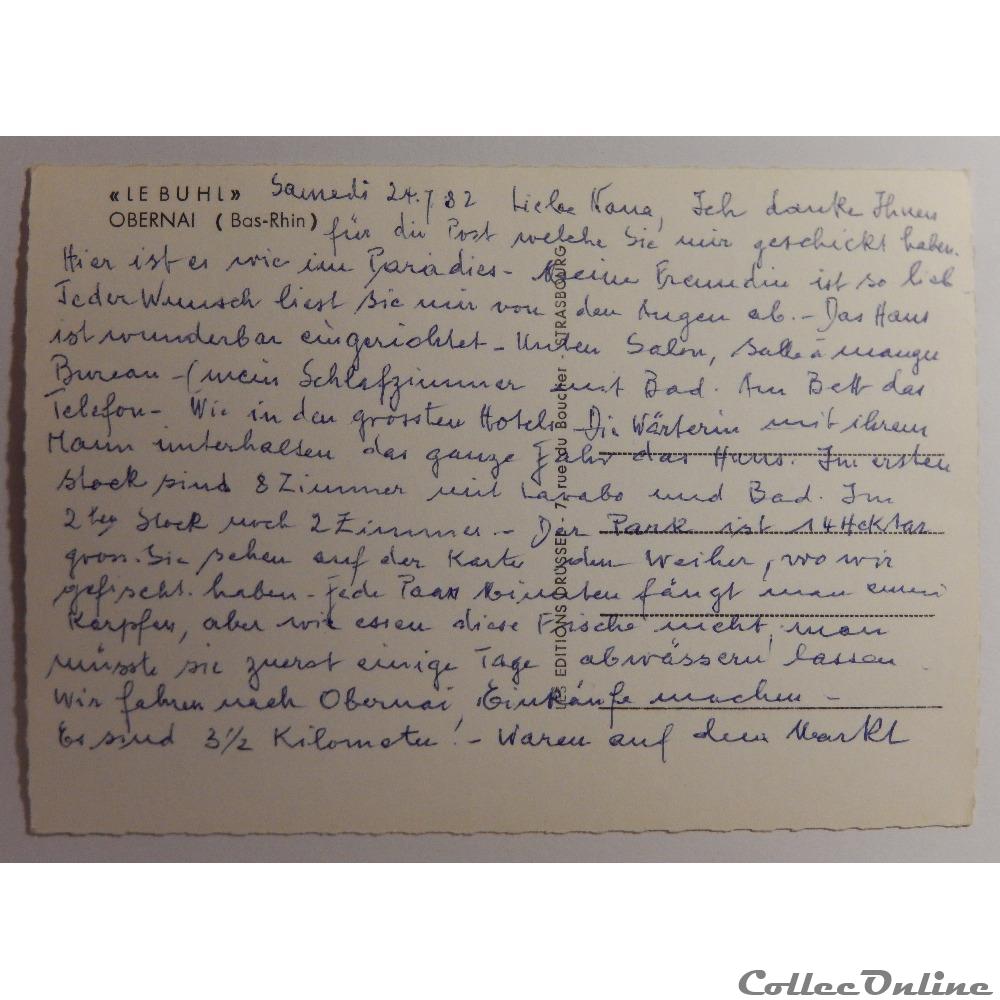 «LE BUHL» Samedi 24.7 82 Liebe Nana, Ich danke Ihnen
OBERNAI (Bas-Rhin) für die Post welche Sie mir geschickt haben.
Hier ist es wie im Paradies - Meine Freundin ist so lieb -
Jeder Wunsch liest sie mir von den Augen ab. - Das Haus
ist wunderbar eingerichtet - Unten Salon, Salle à manger
Bureau - (mein Schlafzimmer mit Bad. Am Bett das
Telefon - Wie in den grössten Hotels - Die Wärterin mit ihrem
Mann unterhalten das ganze Jahr das Haus. Im ersten
Stock sind 8 Zimmer mit Lavabo und Bad. Im
2ten Stock noch 2 Zimmer - Der Park ist 14 Hektar
gross. Sie sehen auf der Karte den Weiher, wo wir
gefischt haben - Jede Paar Minuten fängt man einen
Karpfen, aber wir essen diese Fische nicht, man
müsste sie zuerst einige Tage abwässern lassen -
Wir fahren nach Obernai, Einkäufe machen -
Es sind 3½ Kilometer! - Waren auf dem Markt
LES EDITIONS DRÜSSEL - 7, rue du Boucher - STRASBOURG
CollecOnline